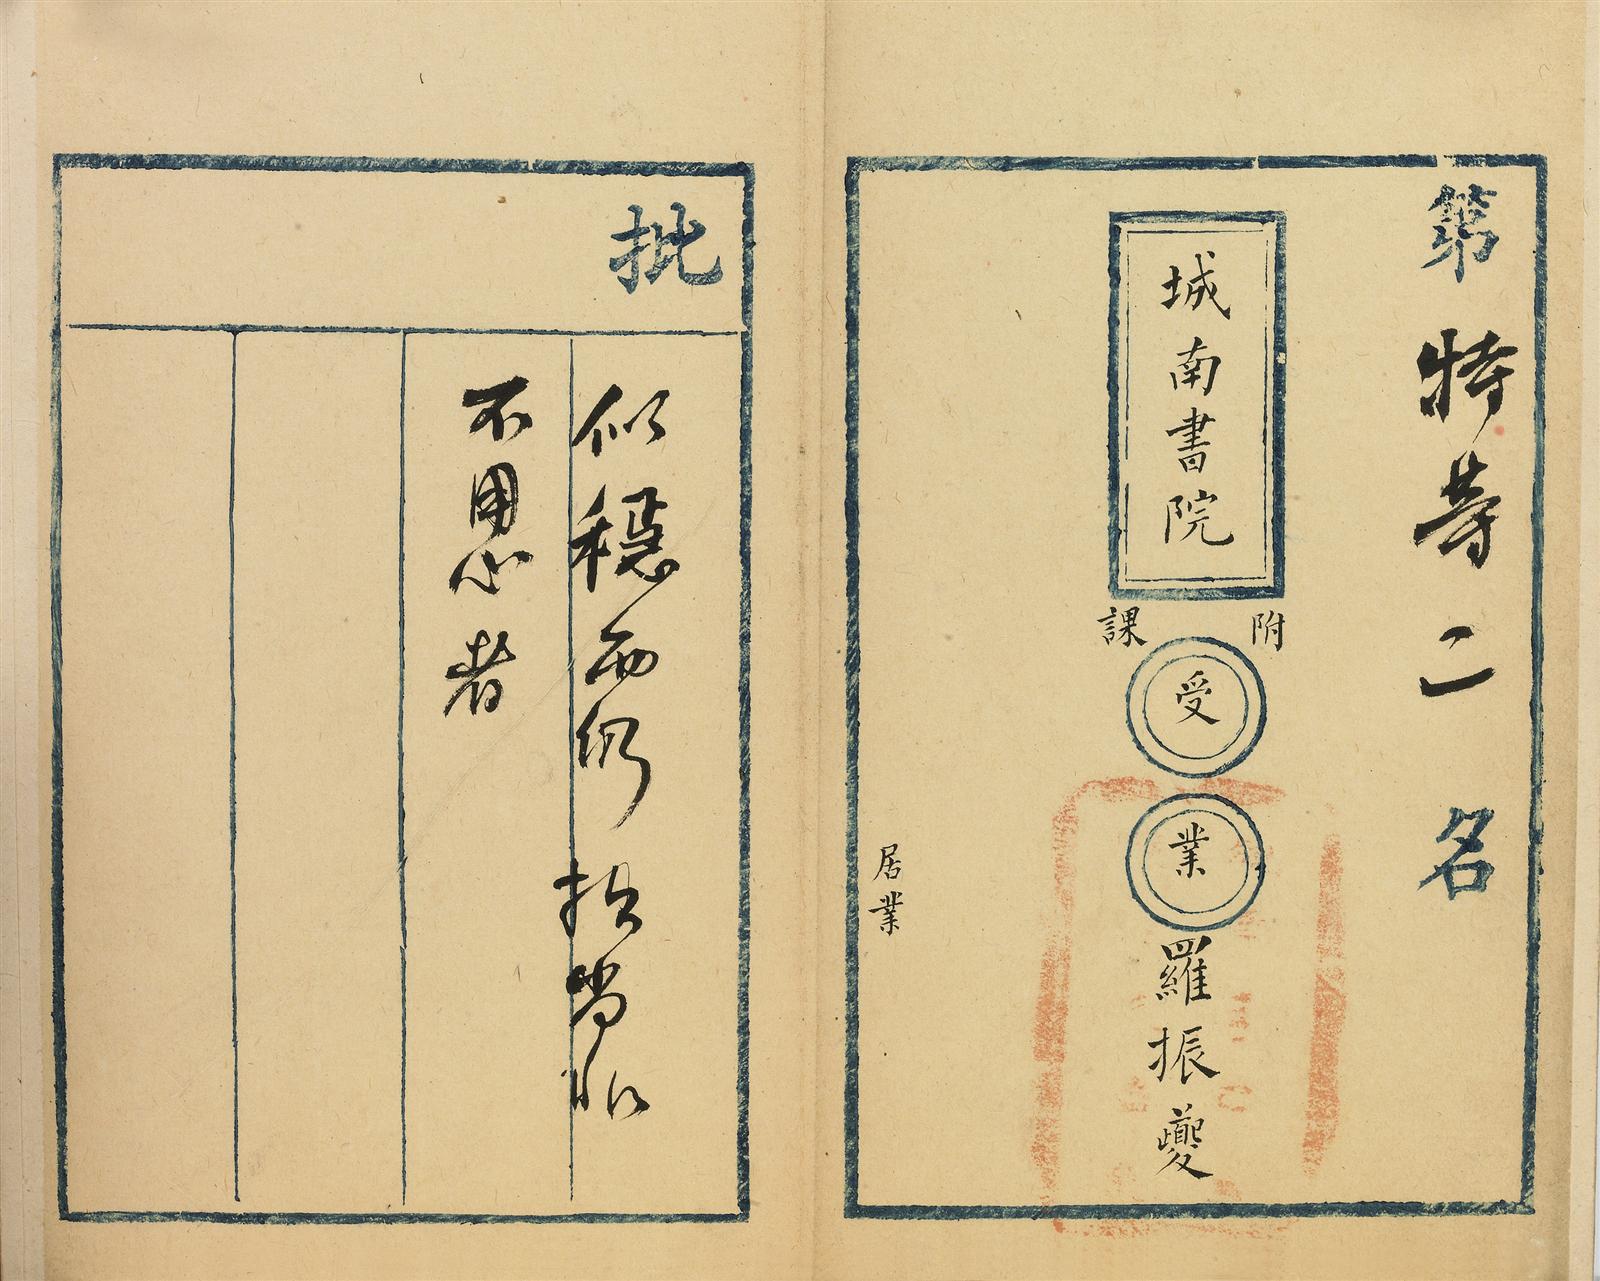 第特等二名
城南書院
附課
受業羅振夔
居業
批
似穩而仍拙尚非
不用心者